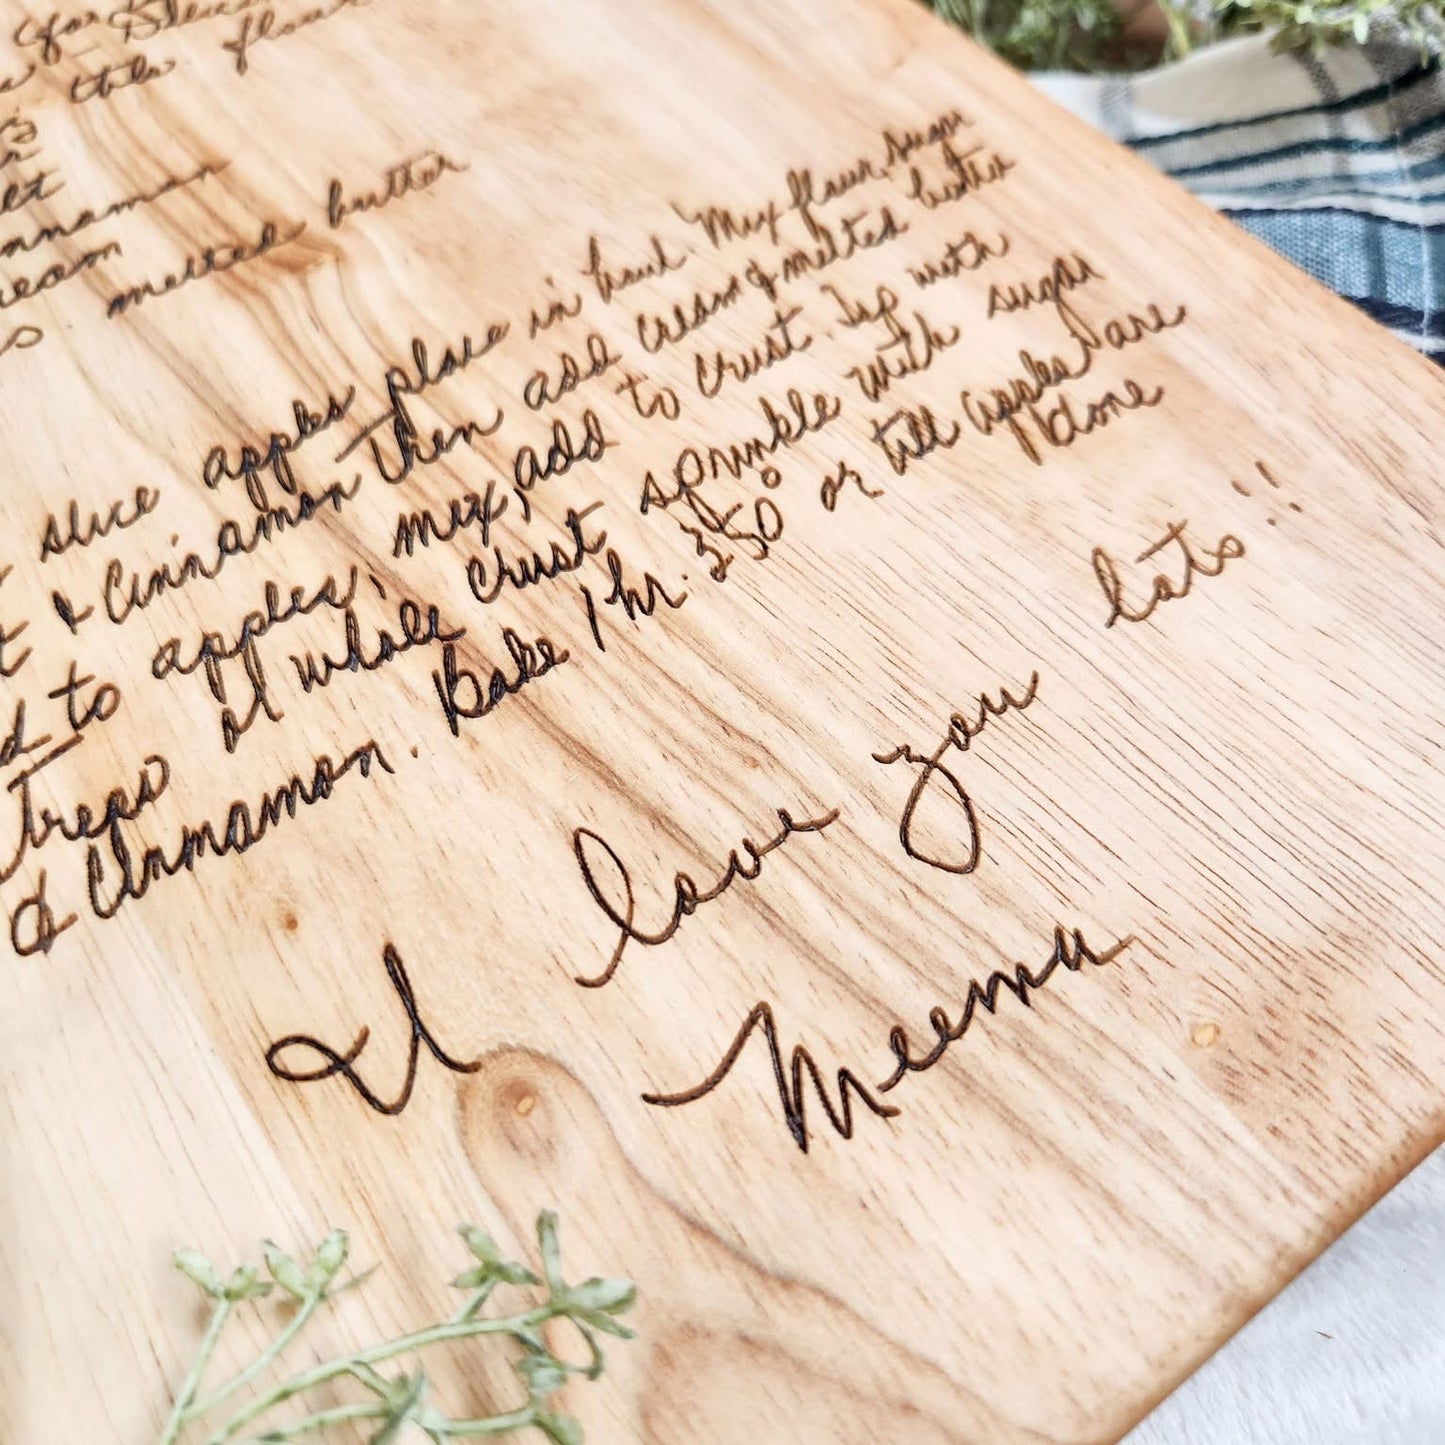 (for
tbls flour
lt
nnamon
melted butter
slice apples place in bowl. Mix flour, sugar
t & Cinnamon then add cream & melted butter
d to apples, mix, add to crust. Top with
strips or whole crust sprinkle with sugar
& Cinnamon. Bake 1 hr. 350° or till apples are
done
I love you lots!!
Meema